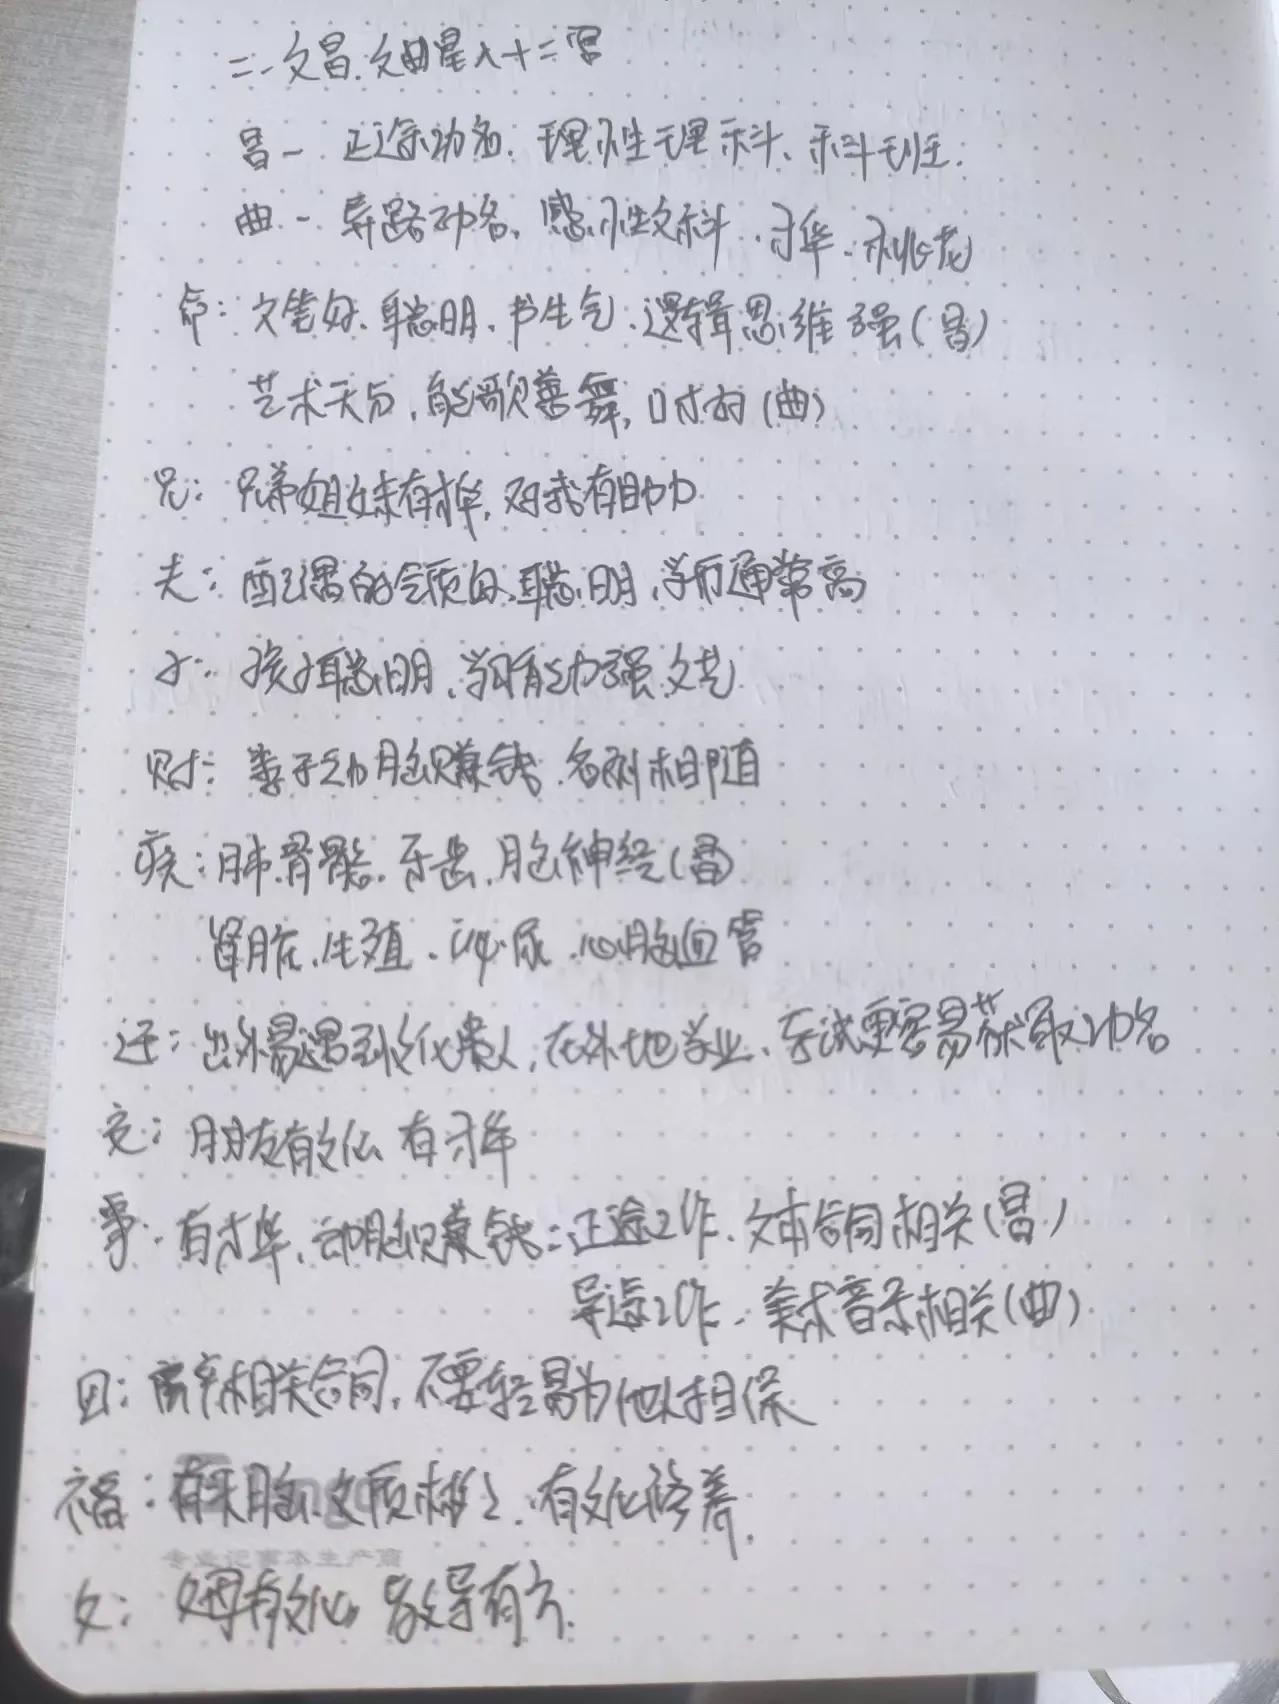 二、文昌.文曲星入十二宫
昌— 正途功名.理性理科、科班.
曲— 异路功名,感性文科.才华.桃花
命:文笔好.聪明.书生气.逻辑思维强(昌)
艺术天分,能歌善舞,口才好(曲)
兄:兄弟姐妹有才华,对我有助力
夫:配偶的气质好.聪明,学历通常高
子:孩子聪明,学习能力强.文艺
财:善于动脑赚钱.名利相随
疾:肺.骨骼.牙齿.脑神经(昌)
肾脏.生殖.泌尿.心脑血管
迁:出外易遇到文化贵人,在外地学业、考试更容易获取功名
交:朋友有文化 有才华
事.有才华,动脑赚钱:正途工作.文本合同相关(昌)
异途工作.美术音乐相关(曲)
田:房产相关合同,不要轻易为他人担保
福:有头脑.文质彬彬.有文化修养.
父:父母有文化 教导有方.